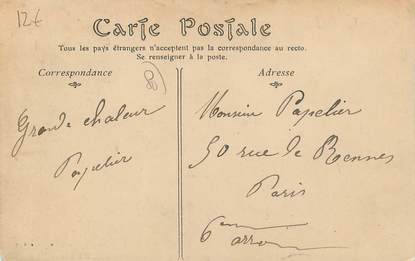 12€
Carte Postale
Tous les pays étrangers n'acceptent pas la correspondance au recto.
Se renseigner à la poste.
Correspondance
Adresse
Grande chaleur
Papelier
Monsieur Papelier
50 rue de Rennes
Paris
6eme arron